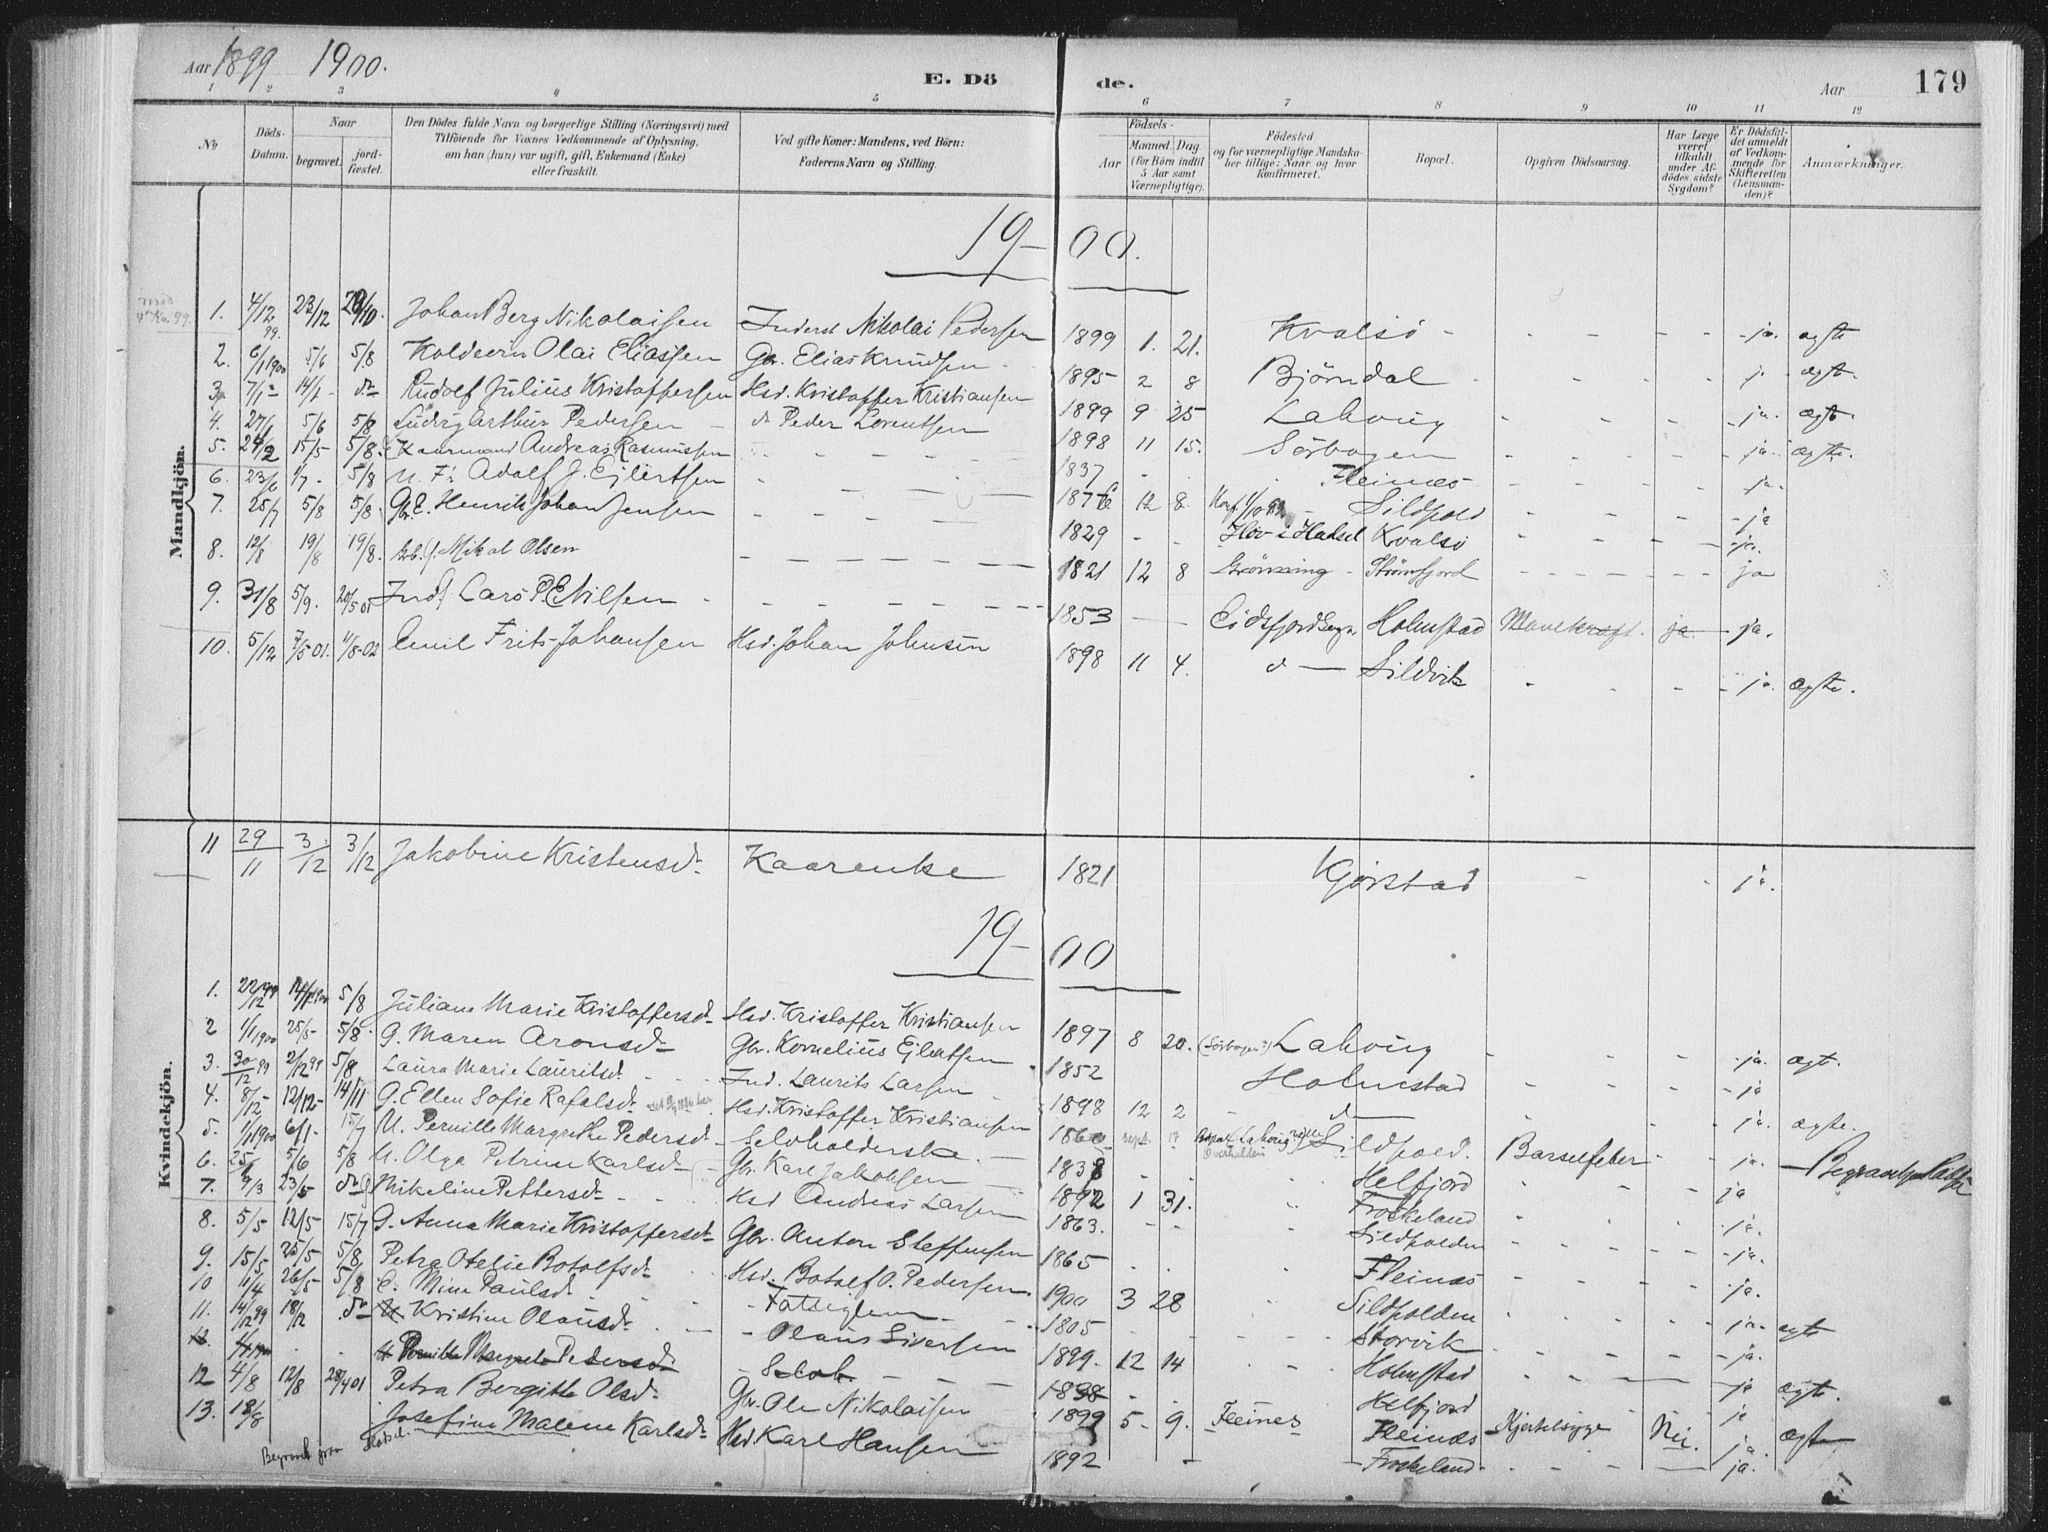 Aar 1899 1900. E. Dö de. Aar 179
1 2 3 4 5 6 7 8 9 10 11 12
No
Döds-Datum.
Naar
begravet.
jordfæstet.
Den Dödes fulde Navn og borgerlige Stilling (Næringsvei) med
Tilföiende for Voxnes Vedkommende af Oplysning,
om han (hun) var ugift, gift, Enkemand (Enke)
eller fraskilt.
Ved gifte Koner: Mandens, ved Börn:
Faderens Navn og Stilling.
Födsels-
Aar
Maaned. Dag.
(for Börn indtil
5 Aar samt
Værnepligtige).
Födested
og for værnepligtige Mandskaber tillige: Naar og hvor
Konfirmeret.
Bopæl.
Opgiven Dödsaarsag.
Har Læge
været
tilkaldt
under Afdödes sidste
Sygdom?
Er Dödsfaldet anmeldt
af Vedkommende for
Skifteretten
(Lensmanden)?
Anmærkninger.
Mandkjön.
19- 00.
1. 4/12 99. 23/12 Johan Berg Nikolaisen Inderst Nikolai Pedersen 1899 1. 21. Kvalsö - - - - ja. ægte
2. 6/1 1900 5/6 5/8 Olai Eliassen Gbr. Elias Knudsen 1895 2 8 Björndal - - - - ægte.
3. 7/1 14/1 do Rudolf Julius Kristoffersen Hsd. Kristoffer Kristiansen 1899 9 25 Lahoug - - - ja. ægte
4. 27/1 5/6 5/8 Ludvig Arthur Pedersen - do Peder Lorentsen 1898 11 15. Sörbogen - - - ja. ægte.
5. 24/2 15/5 5/8. Andreas Rasmussen - - - 1837 - - Fleines - - - ja.
6. 23/6 1/7 - 5/8 U. F. Adolf J. Ejlertsen - - - 12 8. Sildpold - - - ja
7. 25/7 5/8 5/8. Gbr. E. Henrik Johan Jensen - - - 1829 - - Hov i Hadsel Kvalsö - - - ja.
8. 12/8 19/8 19/8. Mikal Olsen - - - 1821 12 8 Grönning - Strömfjord - - - ja
9. 31/8 5/9. 20/5 01 Ind. Lars P. E. Nilsen - - - 1853 - - Eidsfjord Sogn. Holmstad Mavekræft. ja ja.
10. 5/12 7/5 01. 1/8 02 Emil Frits Johansen Hsd. Johan Johnsen 1898 11 4. d - Sildvik - - - ja. ægte.
11 29/11 3/12 3/12 Jakobine Kristensd. Kaarenke 1821 Kjörstad - - ja.
Kvindekjön.
19- 00
1. 22/12 99 5/8 Juliane Marie Kristoffersd. Hsd. Kristoffer Kristiansen 1897 8 20. (Sörbogen?) Lahoug - - - ja. ægt.
2 1/1 1900 25/5 5/8. G. Maren Aronsd. Gbr. Kornelius Ejlertsen 1852 Holmstad - - - ja
3. 30/12 99 2/12 99 5/8 Laura Marie Lauritsd. - - Ind. Laurits Larsen - 1898 12 2 - d - - - ja. ægte.
4. 8/12 12/12 14/11 G. Ellen Sofie Rafalsd. Hsd. Kristoffer Kristiansen sept. 17 Sildpold. Barselfeber - - ja.
5. 1/1 1900 6/1 15/7 U. Pernille Margrethe Pedersd. Selvholderske. - Helfjord - - - ja
6. 5/6 5/8 U. Olga Petrine Karlsd. Gbr. Karl Jakobsen 1892 1 31. Froskeland - - - ja.
7. 9/3 23/5 do Mikeline Pettersd. - - Hsd Andreas Larsen 1863. - - Sildpolden - - - ja.
8. 5/5 12/5 15/7 G. Anna Marie Kristoffersd. Gbr. Anton Steffensen 1865 - - Fleines - - - ja.
9. 15/5 25/5 5/8 Petra Otelie Botolfsd. Hsd. Botolf O. Pedersen. 1900 3 28 Sildpolden - - - ja. ægte
10 11/4 26/5 5/8 E. Mina Paulsd. - Fatsiglem - 1805 - - Storvik - - - ja.
11. 14/12 99 18/12 do Kristine Olausd. - Olaus Siversen 1899. 12 14 Holmstad - - - ja ægte.
12. U Pernille Margrete Pedersd. - Selvh. - - 1838 - Helfjord - - - ja
12 4/8 12/8 28/4 01 Petra Bergitte Olsd. Gbr. Ole Nikolaisen 1899 5 - 9. Fleines Fleines Kjertelsyge Nei. ja. ægte
13. 18/8 Josefine Malene Karlsd. Hsd. Karl Hansen 1892 - - Froskeland - - - ja.
Begravet fra